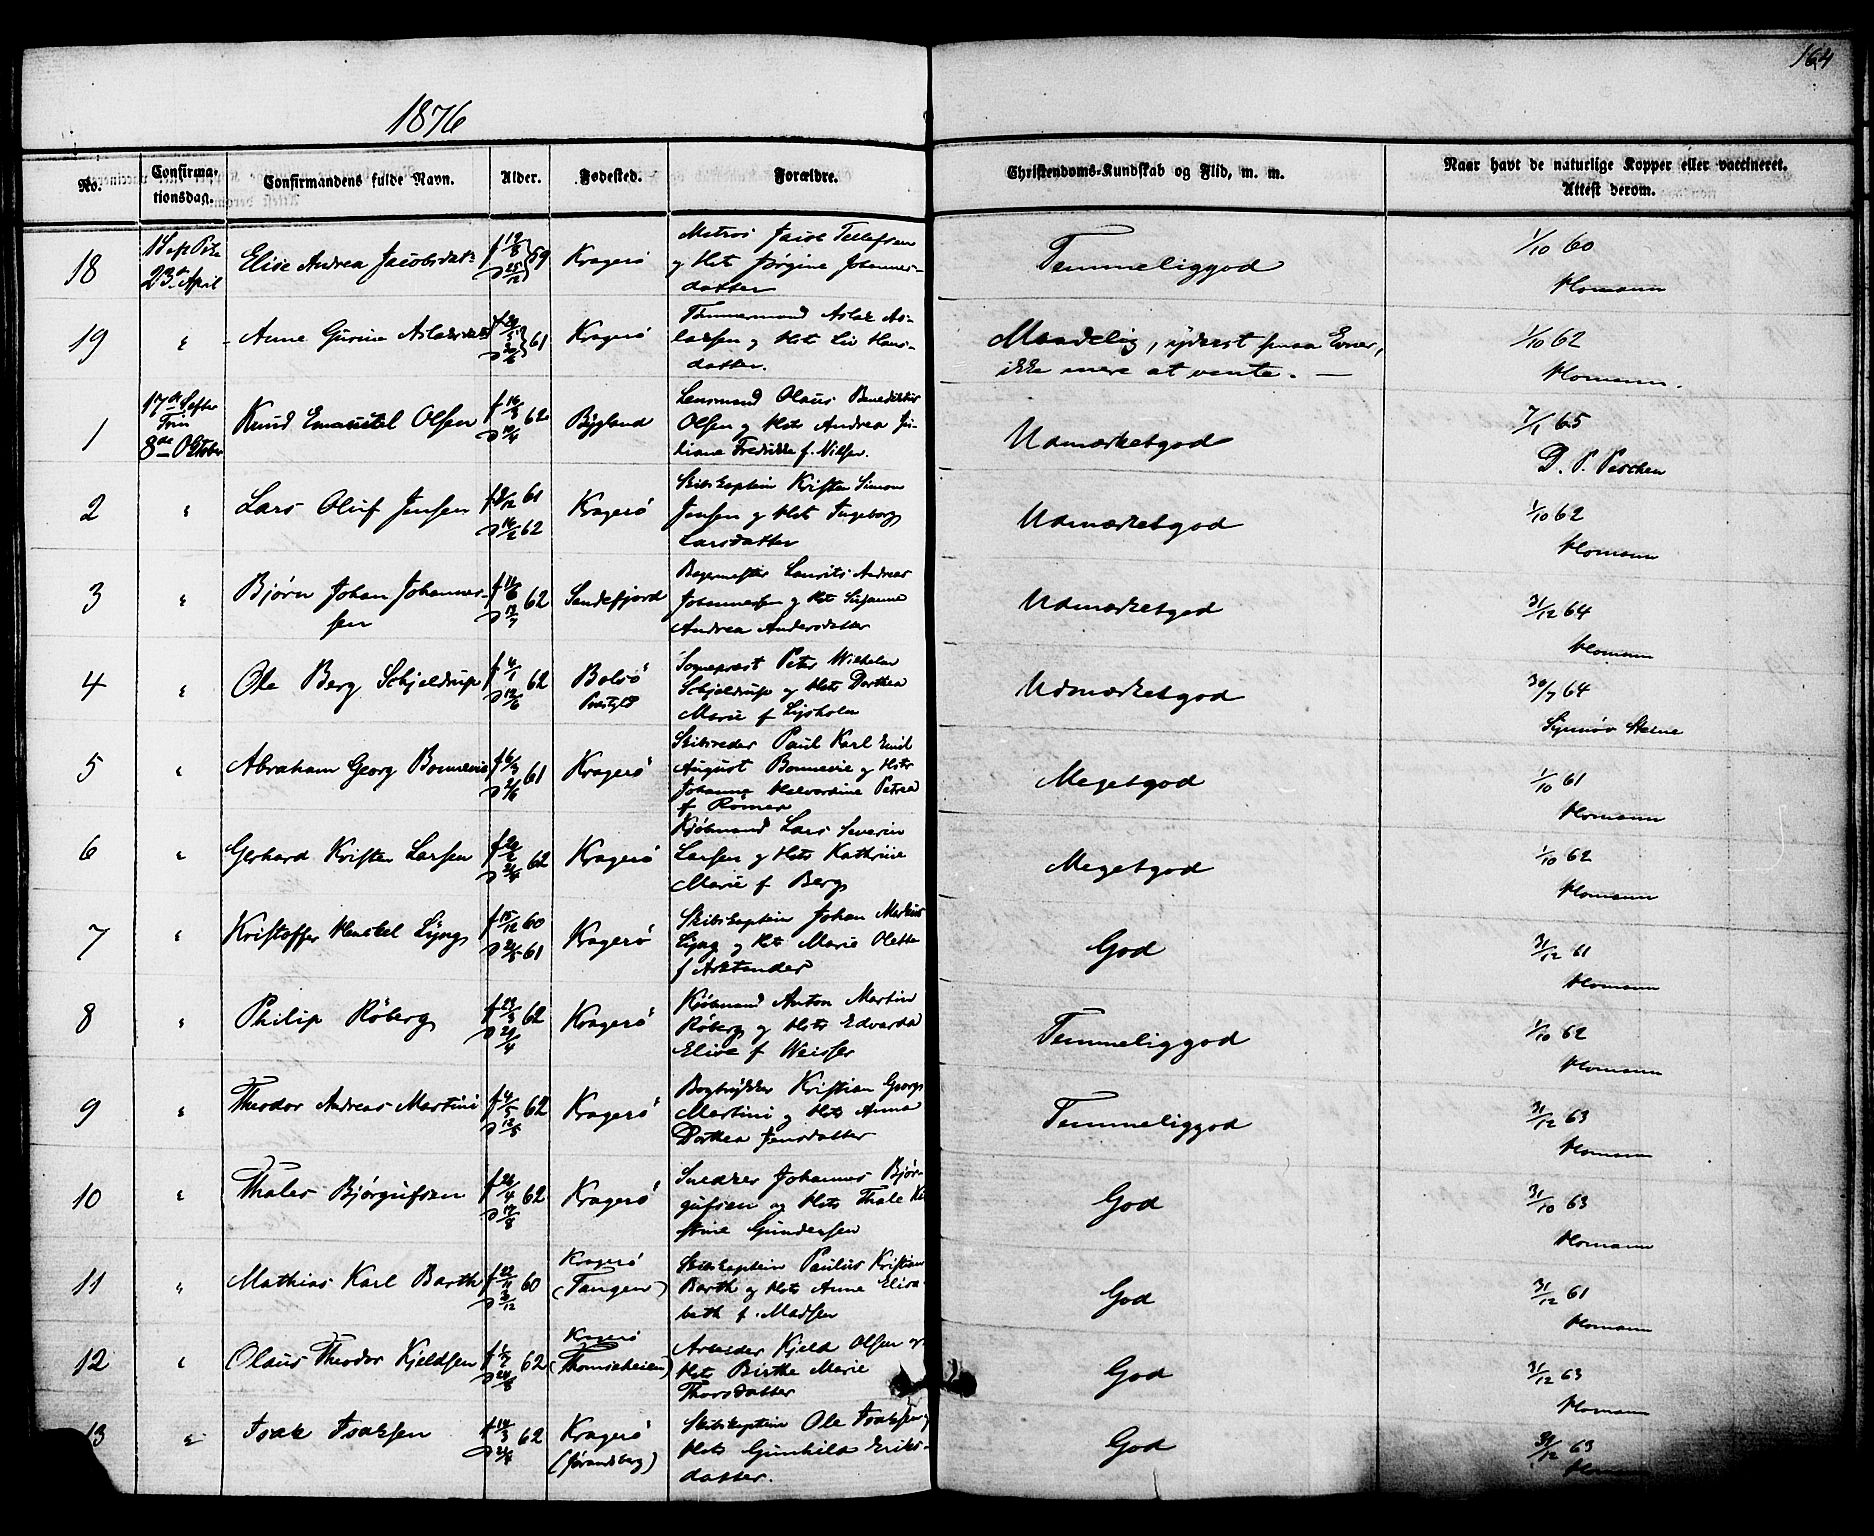 164
1876
No.
Confirma-
tionsdag.
Confirmandens fulde Navn.
Alder.
Fødested.
Forældre.
Christendoms-Kundskab og Flid, m. m.
Naar havt de naturlige Kopper eller vaccineret.
Attest derom.
18
23de April
Elise Andrea Jacobsdatr
f 19/8 59
d 25/12
Kragerø
Matros Jacob Tellefsen
og Hst Jørgine Johannes-
datter
Temmeliggod
1/10 60
Homann
19
"
Anne Gurine
61
Kragerø
Tømmermand Aslak As-
laksen og Hst Liv Hans-
datter.
Maadelig, yderst smaa Evner,
ikke mere at vente. —
1/10 62
Homann.
1
17de S. efter
Trin
8de Oktober
Knud Emanuel Olsen
f 16/3 62
d
Bygland
Lensmand Olaus Benediktus
Olsen og Hst Andrea Ju-
liane Fredrikke f. Nilsen.
Udmærketgod
7/1 65
D. P.
2
"
Lars Oluf Jensen
f /12 61
d 16/2 62
Kragerø
Skibskaptein Kristen Simon
Jensen og Hst Ingeborg
Larsdatter
Udmærketgod
1/10 62
Homann
3
"
Bjørn Johan Johannes-
sen
f 11/6 62
d 17/7
Sandefjord
Bagermester Laurits Andreas
Johannessen og Hst Susanne
Andrea Andersdatter
Udmærketgod
31/12 64
Homann
4
"
Ole Berg Schjeldrup
f 4/1 62
d 12/6
Bolsø
Præstgld
Sognepræst Peter Wilhelm
Schjeldrup og Hst Dorthea
Marie f Lysholm
Udmærketgod
30/7 64
5
"
Abraham Georg Bonnevie
f 6/3 61
d 2/6
Kragerø
Skibsreder Paul Karl Emil
August Bonnevie og Hst
Johanne Halvordine Petrea
f Rømer
Megetgod
1/10 61
Homann
6
"
Gerhard Kristen Larsen
62
Kragerø
Kjøbmand Lars Severin
Larsen og Hst Kathrine
Marie f Berg
Megetgod
1/10 62
Homann
7
"
Kristoffer Henckel Lyng
f 15/12 60
d 61
Kragerø
Skibskaptein Johan Markus
Lyng og Hst Marie Olette
f Arktander
God
31/12 61
Homann
8
"
Philip Røberg
f 23/3 62
d
Kragerø
Kjøbmand Anton Martin
Røberg og Hst Edvarda
Elise f Weisser
Temmeliggod
1/10 62
Homann
9
"
Theodor Andreas Martini
f 4/5 62
d
Kragerø
Bogtrykker Kristian Georg
Martini og Hst Anna
Dorthea Jensdatter
Temmeliggod
31/12 63
Homann
10
"
Thales Bjørgufsen
62
Kragerø
Snedker Johannes Bjør-
gufsen og Hst Thale Ki-
stine Gundersen
God
31/10 63
Homann
11
"
Mathias Karl Barth
f 22/11 60
d 3/12
Kragerø
(Tangen)
Skibskaptein Paulus Kristian
Barth og Hst Anne Elisa-
beth f. Madsen
God
31/12 61
Homann
12
"
Olaus Theodor Kjeldsen
f 1/7 62
d 24/8
Kragerø
(Thomesheien)
Arbeider Kjeld Olsen og
Hst Birthe Marie
Thorsdatter
God
31/12 63
Homann
13
"
Isak Isaksen
f 14/3 62
d
Kragerø
Skibskaptein Ole Isaksen og
Hst Gunhild Eriks-
datter.
God
31/12 63
Homann